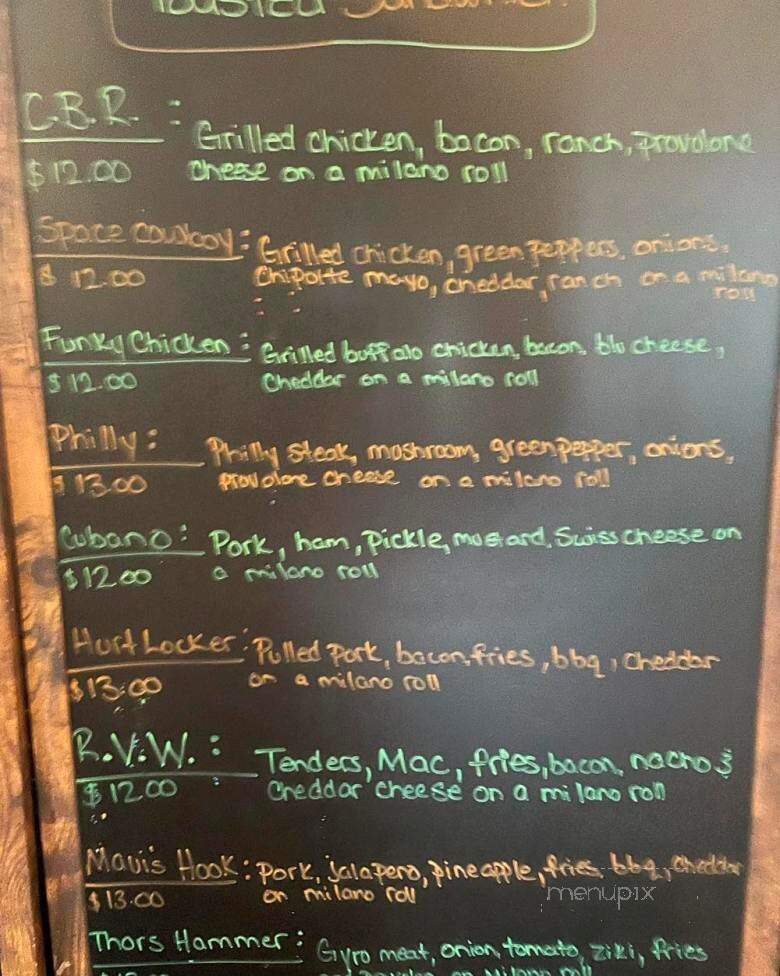 Toasted Sandwiches
C.B.R. : Grilled chicken, bacon, ranch, provolone
$12.00 cheese on a milano roll
Space cowboy: Grilled chicken, green peppers, onions,
$12.00 Chipolte mayo, cheddar, ranch on a milano
roll
Funky Chicken: Grilled buffalo chicken, bacon, blu cheese,
$12.00 Cheddar on a milano roll
Philly: Philly steak, moshroom, green pepper, onions,
$13.00 provolone cheese on a milano roll
Cubano: Pork, ham, Pickle, mustard, Swiss cheese on
$12.00 a milano roll
Hurt Locker: Pulled Pork, bacon, fries, bbq, cheddar
$13.00 on a milano roll
R.V.W.: Tenders, Mac, fries, bacon, nacho &
$12.00 Cheddar cheese on a milano roll
Maui's Hook: Pork, jalapero, pineapple, fries, bbq, cheddar
$13.00 on milano roll
menupix
Thors Hammer: Gyro meat, onion, tomato, ziki, fries
on milano roll